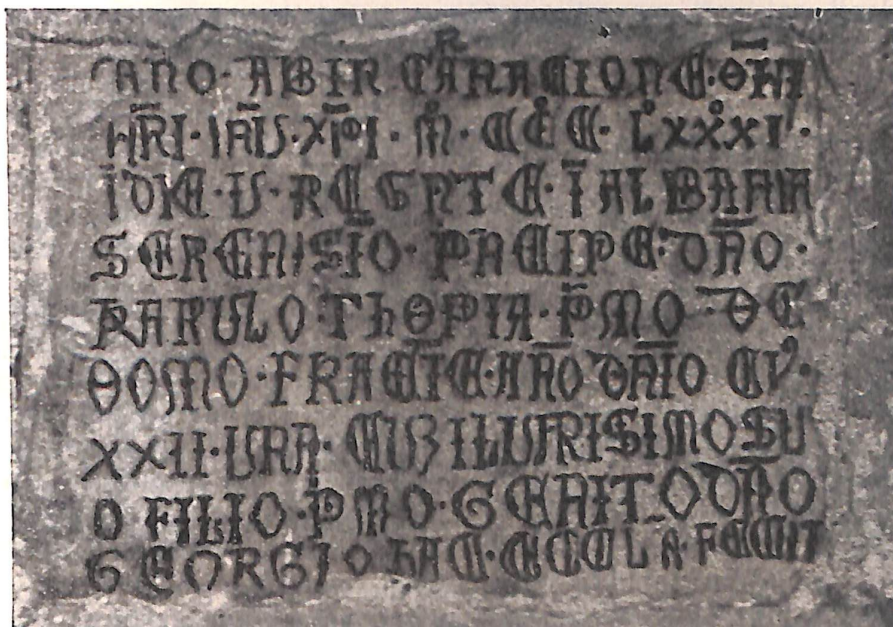 ANO · ABIN CARNACIONE · DNI
NRI · IHU · XPI · M · CCC · LXXXI ·
IDIE · U · REGNTE · I ALBANIA
SERENISIO · PNCIPE · DNO ·
KARULO · THOPIA · PMO · DE
DOMO · FRACIE · ANO DNIO CV ·
XXII · URA · CUB ILURISIMO SU
O FILIO · PMO · GENITO DNO
GEORGIO HAC · ECCLA · FECIT